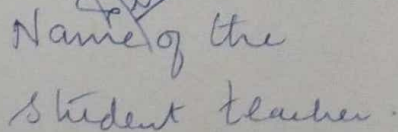 Name of the
Student teacher.